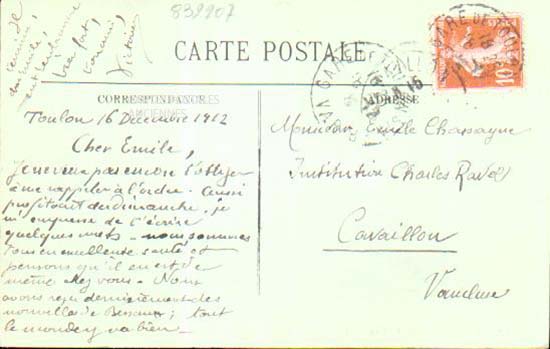 838907
CARTE POSTALE
CORRESPONDANCE
ADRESSE
10
Toulon 16 Décembre 1912
Cher Emile,
Je ne veux pas encore t'obliger
à me rappeler à l'ordre. Aussi
profitant du dimanche, je
m'empresse de t'écrire
quelques mots – nous sommes
tous en excellente santé et
pensons qu'il en est de
même chez vous – Nous
avons reçu dernièrement des
nouvelles de ; tout
le monde y va bien –
Monsieur Emile Chassagne
Institution Charles Ravel
Cavaillon
Vaucluse